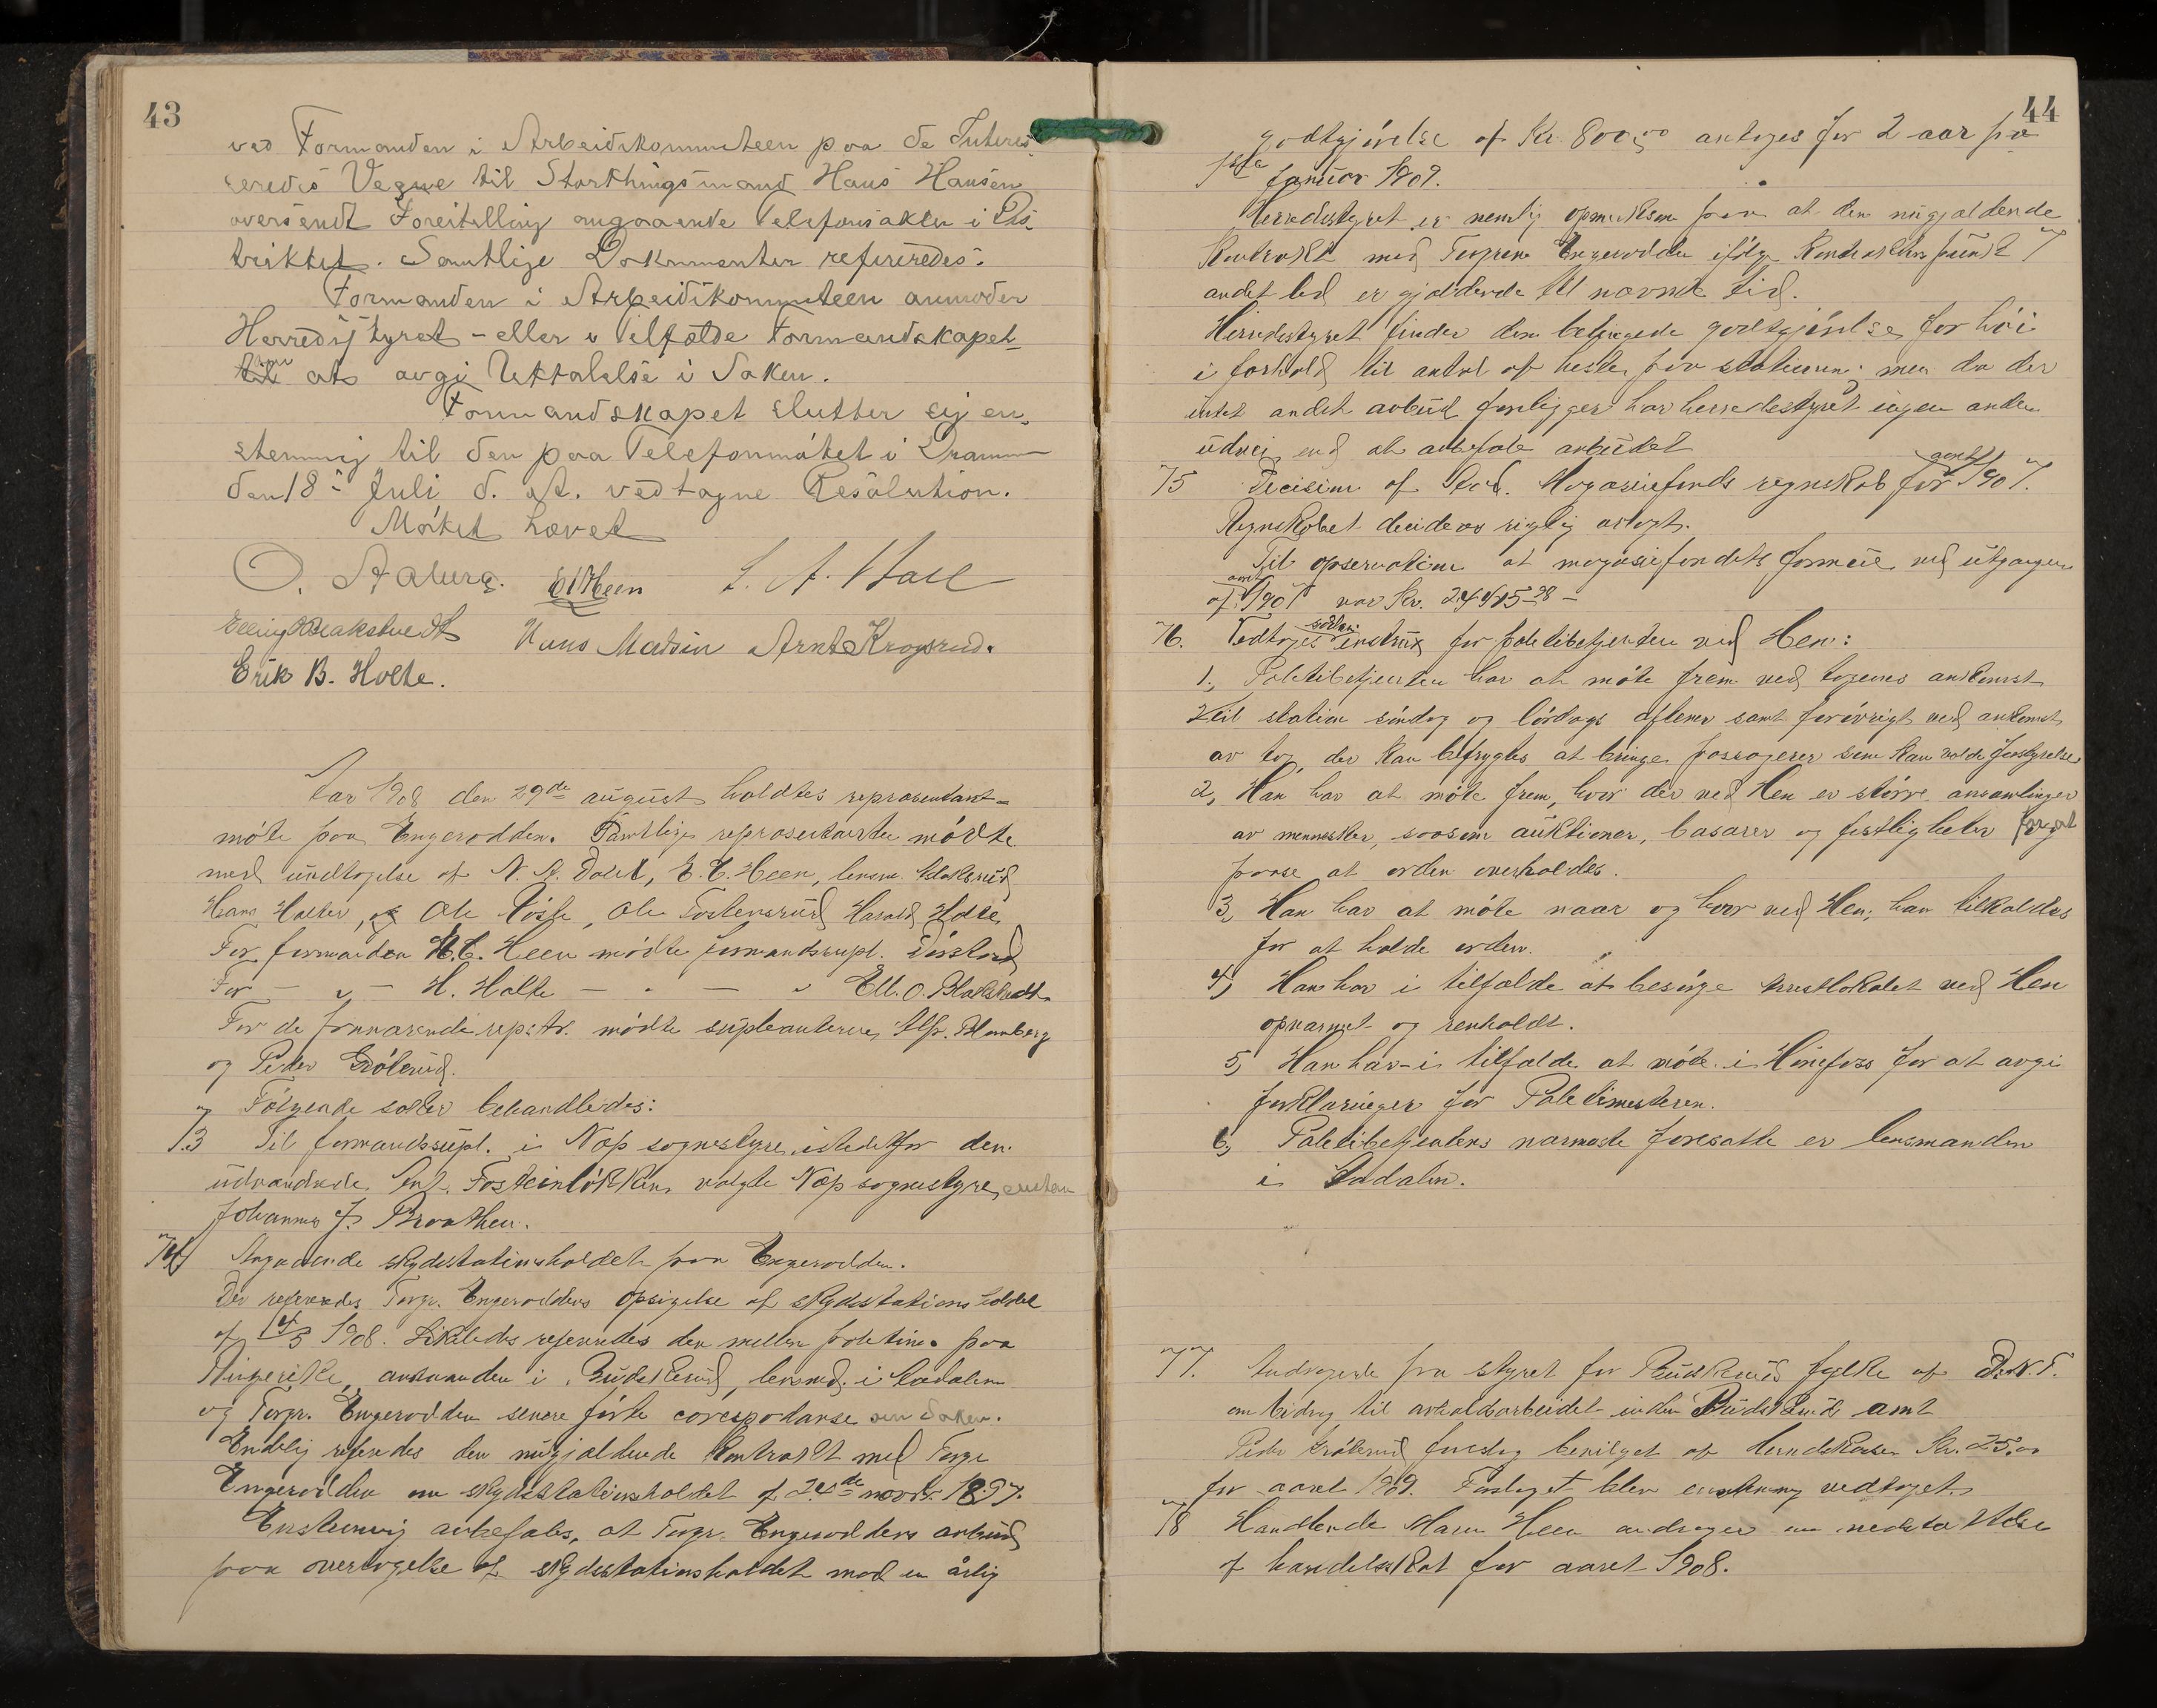 43
ved Formanden i Arbeidskommiteen paa de Interes-
seredes Vegne til Storthingsmand Hans Hansen
oversendt Forestilling angaaende Telefonsaken i Dis-
triktet. Samtlige Dokumenter refereredes.
Formanden i Arbeidskommiteen anmoder
Herredsstyret - eller i Tilfælde Formandskapet -
om at avgi Uttalelse i Saken.
Formandskapet slutter sig en-
stemmig til den paa Telefonmøtet i Dramm
den 18de Juli d. A. vedtagne Resolution.
Møtet hævet
O. Aaberg. E C Heen
Hans Madsen Arnt Krogsrud.
Erik B. Holte.
Aar 1908 den 29de august holdtes repræsentant-
møte paa Engerodden. Samtlige repræsentanter mødte
med undtagelse af N. N. E. C. Heen, lensm.
Hans Halter, og Ole Ole Tostensrud Harald Holte
For formanden E. C. Heen mødte formandssupl.
For — " — H. Holte — " — " Ell. O. Blakstvedt
For de fraværende reprstr. mødte supleanterne Alfr. Blomberg
og Peder Grøterud.
Følgende saker behandledes:
73 Til formandssupl. i Næs sognestyre istedetfor den
udvandrede Fosteinløkken valgte Næs sognestyre
Johannes J. Braathen.
74 Angaaende skydsstationsholdet paa Engerodden.
Der refereredes Torgr. Engeroddens opsigelse af skydsstationsholdet
af 14/3 1908. Likeledes refereredes den mellem politim. paa
Ringerike, amtmanden i Buskerud, lensmd. i Aadalen
og Torgr. Engerodden senere førte corespodanse om saken.
Endelig referedes den nugjældende kontrakt med Torgr
Engerodden om skydsstationsholdet af 24de novbr. 1897.
Enstemmig anbefales, at Torgr. Engeroddens anbud
paa overtagelse af skydsstationsholdet mod en årlig
44
godtgjørelse af Kr 800,00 antages for 2 aar fra
1ste januar 1909.
Herredsstyret er nemlig opmerksom paa at den nugjældende
kontrakt med Torgrim Engerodden ifølge kontraktens punkt 7
andet led er gjældende til nævnte tid.
Herredsstyret finder den betingede godtgjørelse for høi
i forhold til antal af heste paa stationen; men da der
intet andet anbud foreligger har herredsstyret ingen anden
udvei end at anbefale anbudet
75 Decision af Magasinfonds regnskab for aaret 1907.
Regnskabet decideres rigtig avlagt.
Til opservation at magasinfondets formue ved utgangen
af aaret 1907 var Kr.
76. Vedtages sådan instrux for politibetjenten ved Hen:
1, Politibetjenten har at møte frem ved togenes ankomst
til station søndag og lørdags aftener samt forøvrigt ved ankomst
av tog, der kan befrygtes at bringe passagerer som kan volde forstyrrelse
2, Han har at møte frem, hvor der ved Hen er større ansamlinger
av mennesker, saasom auktioner, basarer og festligheter for at
paase at orden overholdes.
3, Han har at møte naar og hvor ved Hen, han tilkaldes
for at holde orden.
4, Han har i tilfælde at besørge arestlokalet ved Hen
opvarmet og renholdt.
5, Han har i tilfælde at møte i Hønefoss for at avgi
forklaringer for Politimesteren.
6, Politibetjentens nærmeste foresatte er lensmanden
i Aadalen.
77. Andragende fra styret for Buskerud fylke af D.N.T.
om bidrag til avholdsarbeidet inden Buskerud amt
Peder Grøterud foreslog bevilget af Herredskassen Kr. 25,00
for aaret 1909. Forslaget blev enstemmig vedtaget.
78 Handlende Maren Heen andrager om nedsættelse
af handelsskat for aaret 1908.